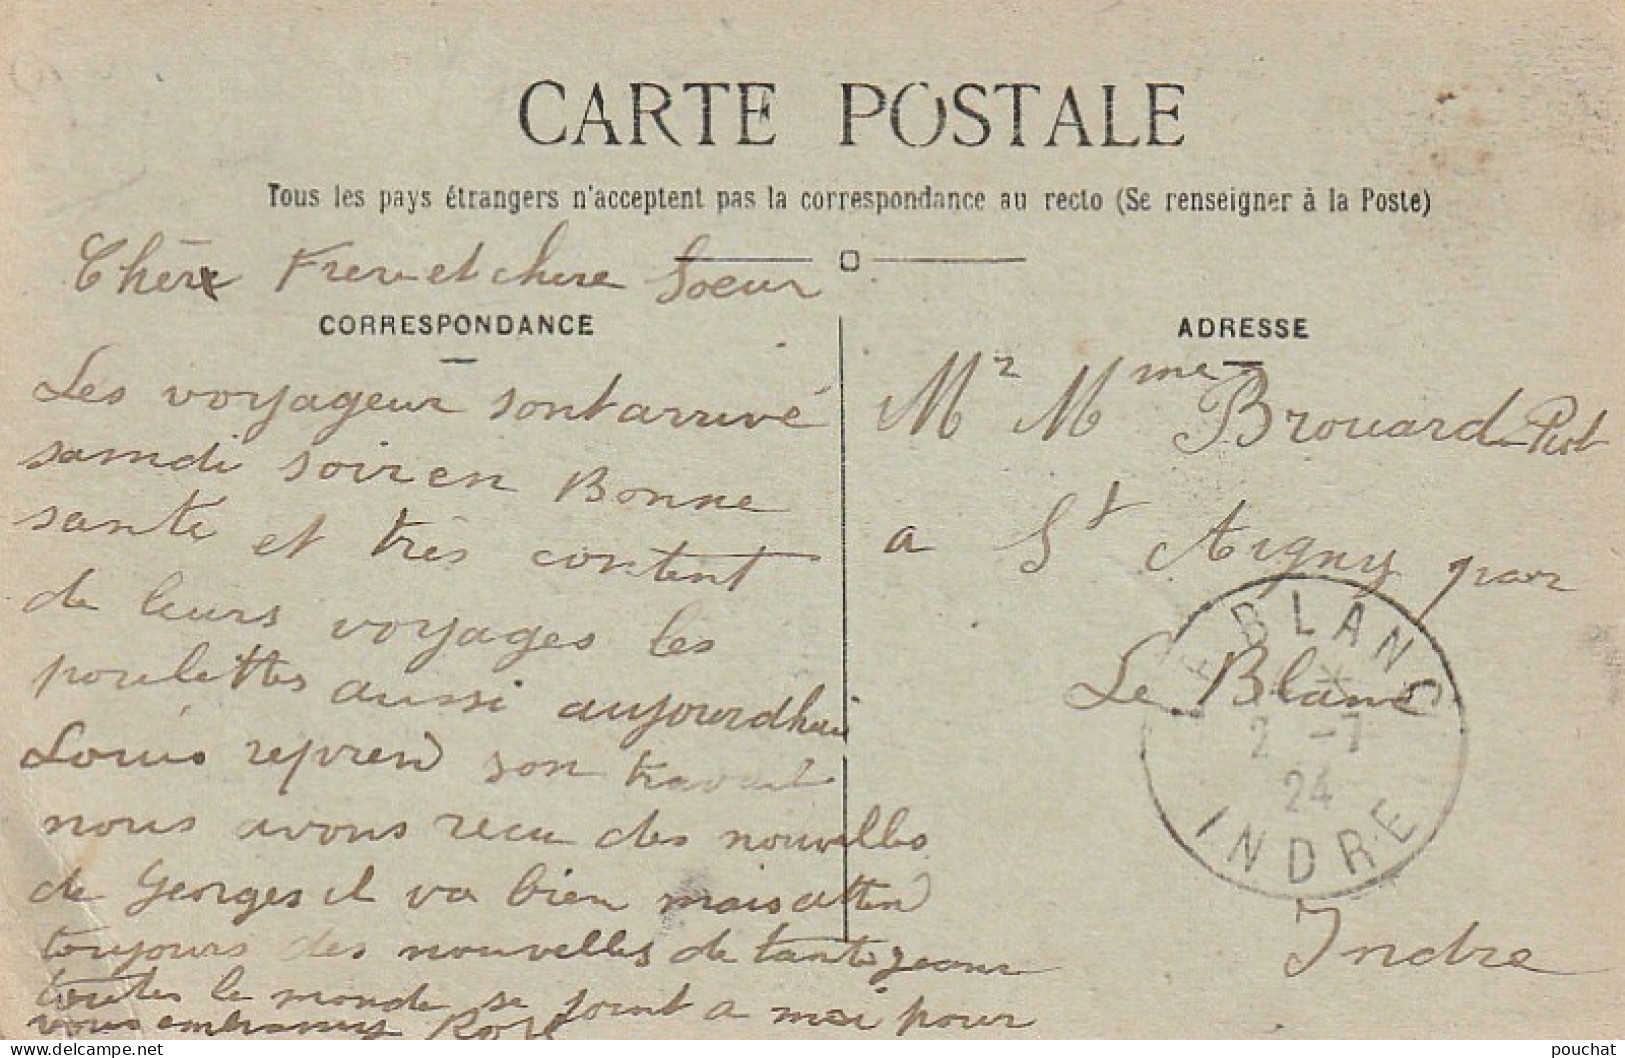 CARTE POSTALE
Tous les pays étrangers n'acceptent pas la correspondance au recto (Se renseigner à la Poste)
Chère Frere et chere Soeur
CORRESPONDANCE
Les voyageur sont arrivé
samdi soir en Bonne
santé et très content
de leurs voyages les
poulettes aussi aujourdhui
Louis reprend son travail
nous avons recu des nouvelles
de Georges il va bien mais atten
toujours des nouvelles de tante jeanne
toutes le monde se joint a moi pour
vous embrassez Rose
ADRESSE
Mr Mme Brouard
a St Aigny par
Le Blanc
Indre
LE BLANC
*
2 -7
24
INDRE
pouchat